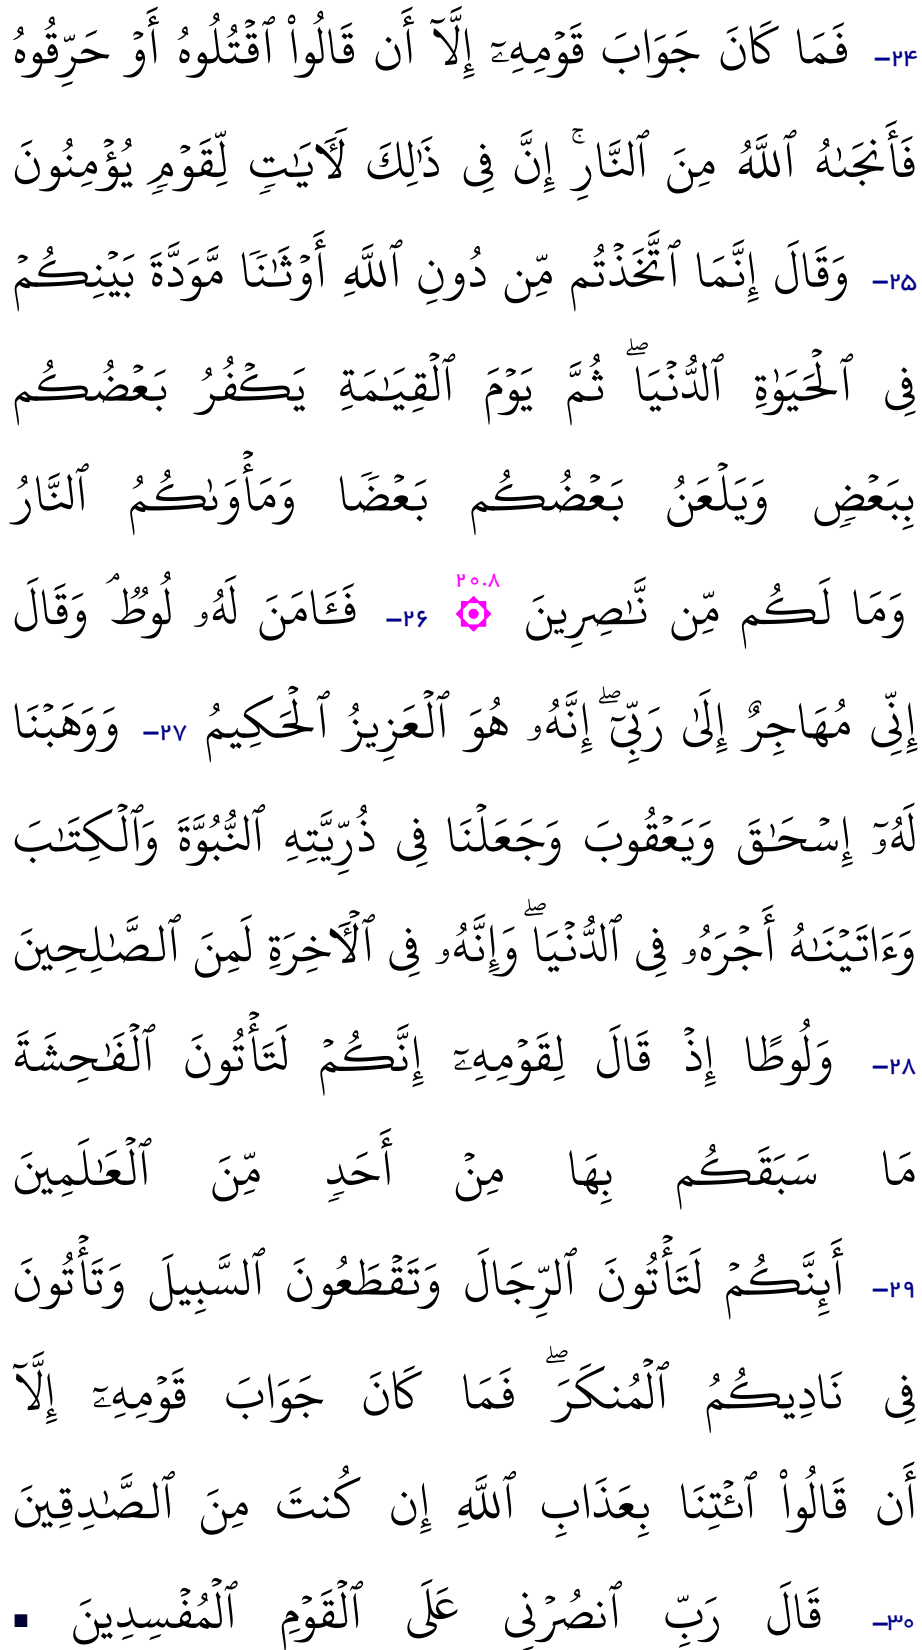 ۲۴– فَمَا كَانَ جَوَابَ قَوْمِهِۦٓ إِلَّآ أَن قَالُوا۟ ٱقْتُلُوهُ أَوْ حَرِّقُوهُ
فَأَنجَىٰهُ ٱللَّهُ مِنَ ٱلنَّارِ ۚ إِنَّ فِى ذَٰلِكَ لَـَٔايَـٰتٍ لِّقَوْمٍ يُؤْمِنُونَ
۲۵– وَقَالَ إِنَّمَا ٱتَّخَذْتُم مِّن دُونِ ٱللَّهِ أَوْثَـٰنًا مَّوَدَّةَ بَيْنِكُمْ
فِى ٱلْحَيَوٰةِ ٱلدُّنْيَا ۖ ثُمَّ يَوْمَ ٱلْقِيَـٰمَةِ يَكْفُرُ بَعْضُكُم
بِبَعْضٍ وَيَلْعَنُ بَعْضُكُم بَعْضًا وَمَأْوَىٰكُمُ ٱلنَّارُ
وَمَا لَكُم مِّن نَّـٰصِرِينَ ۞ ۲۰.۸ ۲۶– فَـَٔامَنَ لَهُۥ لُوطٌ ۘ وَقَالَ
إِنِّى مُهَاجِرٌ إِلَىٰ رَبِّىٓ ۖ إِنَّهُۥ هُوَ ٱلْعَزِيزُ ٱلْحَكِيمُ ۲۷– وَوَهَبْنَا
لَهُۥٓ إِسْحَـٰقَ وَيَعْقُوبَ وَجَعَلْنَا فِى ذُرِّيَّتِهِ ٱلنُّبُوَّةَ وَٱلْكِتَـٰبَ
وَءَاتَيْنَـٰهُ أَجْرَهُۥ فِى ٱلدُّنْيَا ۖ وَإِنَّهُۥ فِى ٱلْـَٔاخِرَةِ لَمِنَ ٱلصَّـٰلِحِينَ
۲۸– وَلُوطًا إِذْ قَالَ لِقَوْمِهِۦٓ إِنَّكُمْ لَتَأْتُونَ ٱلْفَـٰحِشَةَ
مَا سَبَقَكُم بِهَا مِنْ أَحَدٍ مِّنَ ٱلْعَـٰلَمِينَ
۲۹– أَئِنَّكُمْ لَتَأْتُونَ ٱلرِّجَالَ وَتَقْطَعُونَ ٱلسَّبِيلَ وَتَأْتُونَ
فِى نَادِيكُمُ ٱلْمُنكَرَ ۖ فَمَا كَانَ جَوَابَ قَوْمِهِۦٓ إِلَّآ
أَن قَالُوا۟ ٱئْتِنَا بِعَذَابِ ٱللَّهِ إِن كُنتَ مِنَ ٱلصَّـٰدِقِينَ
۳۰– قَالَ رَبِّ ٱنصُرْنِى عَلَى ٱلْقَوْمِ ٱلْمُفْسِدِينَ ■